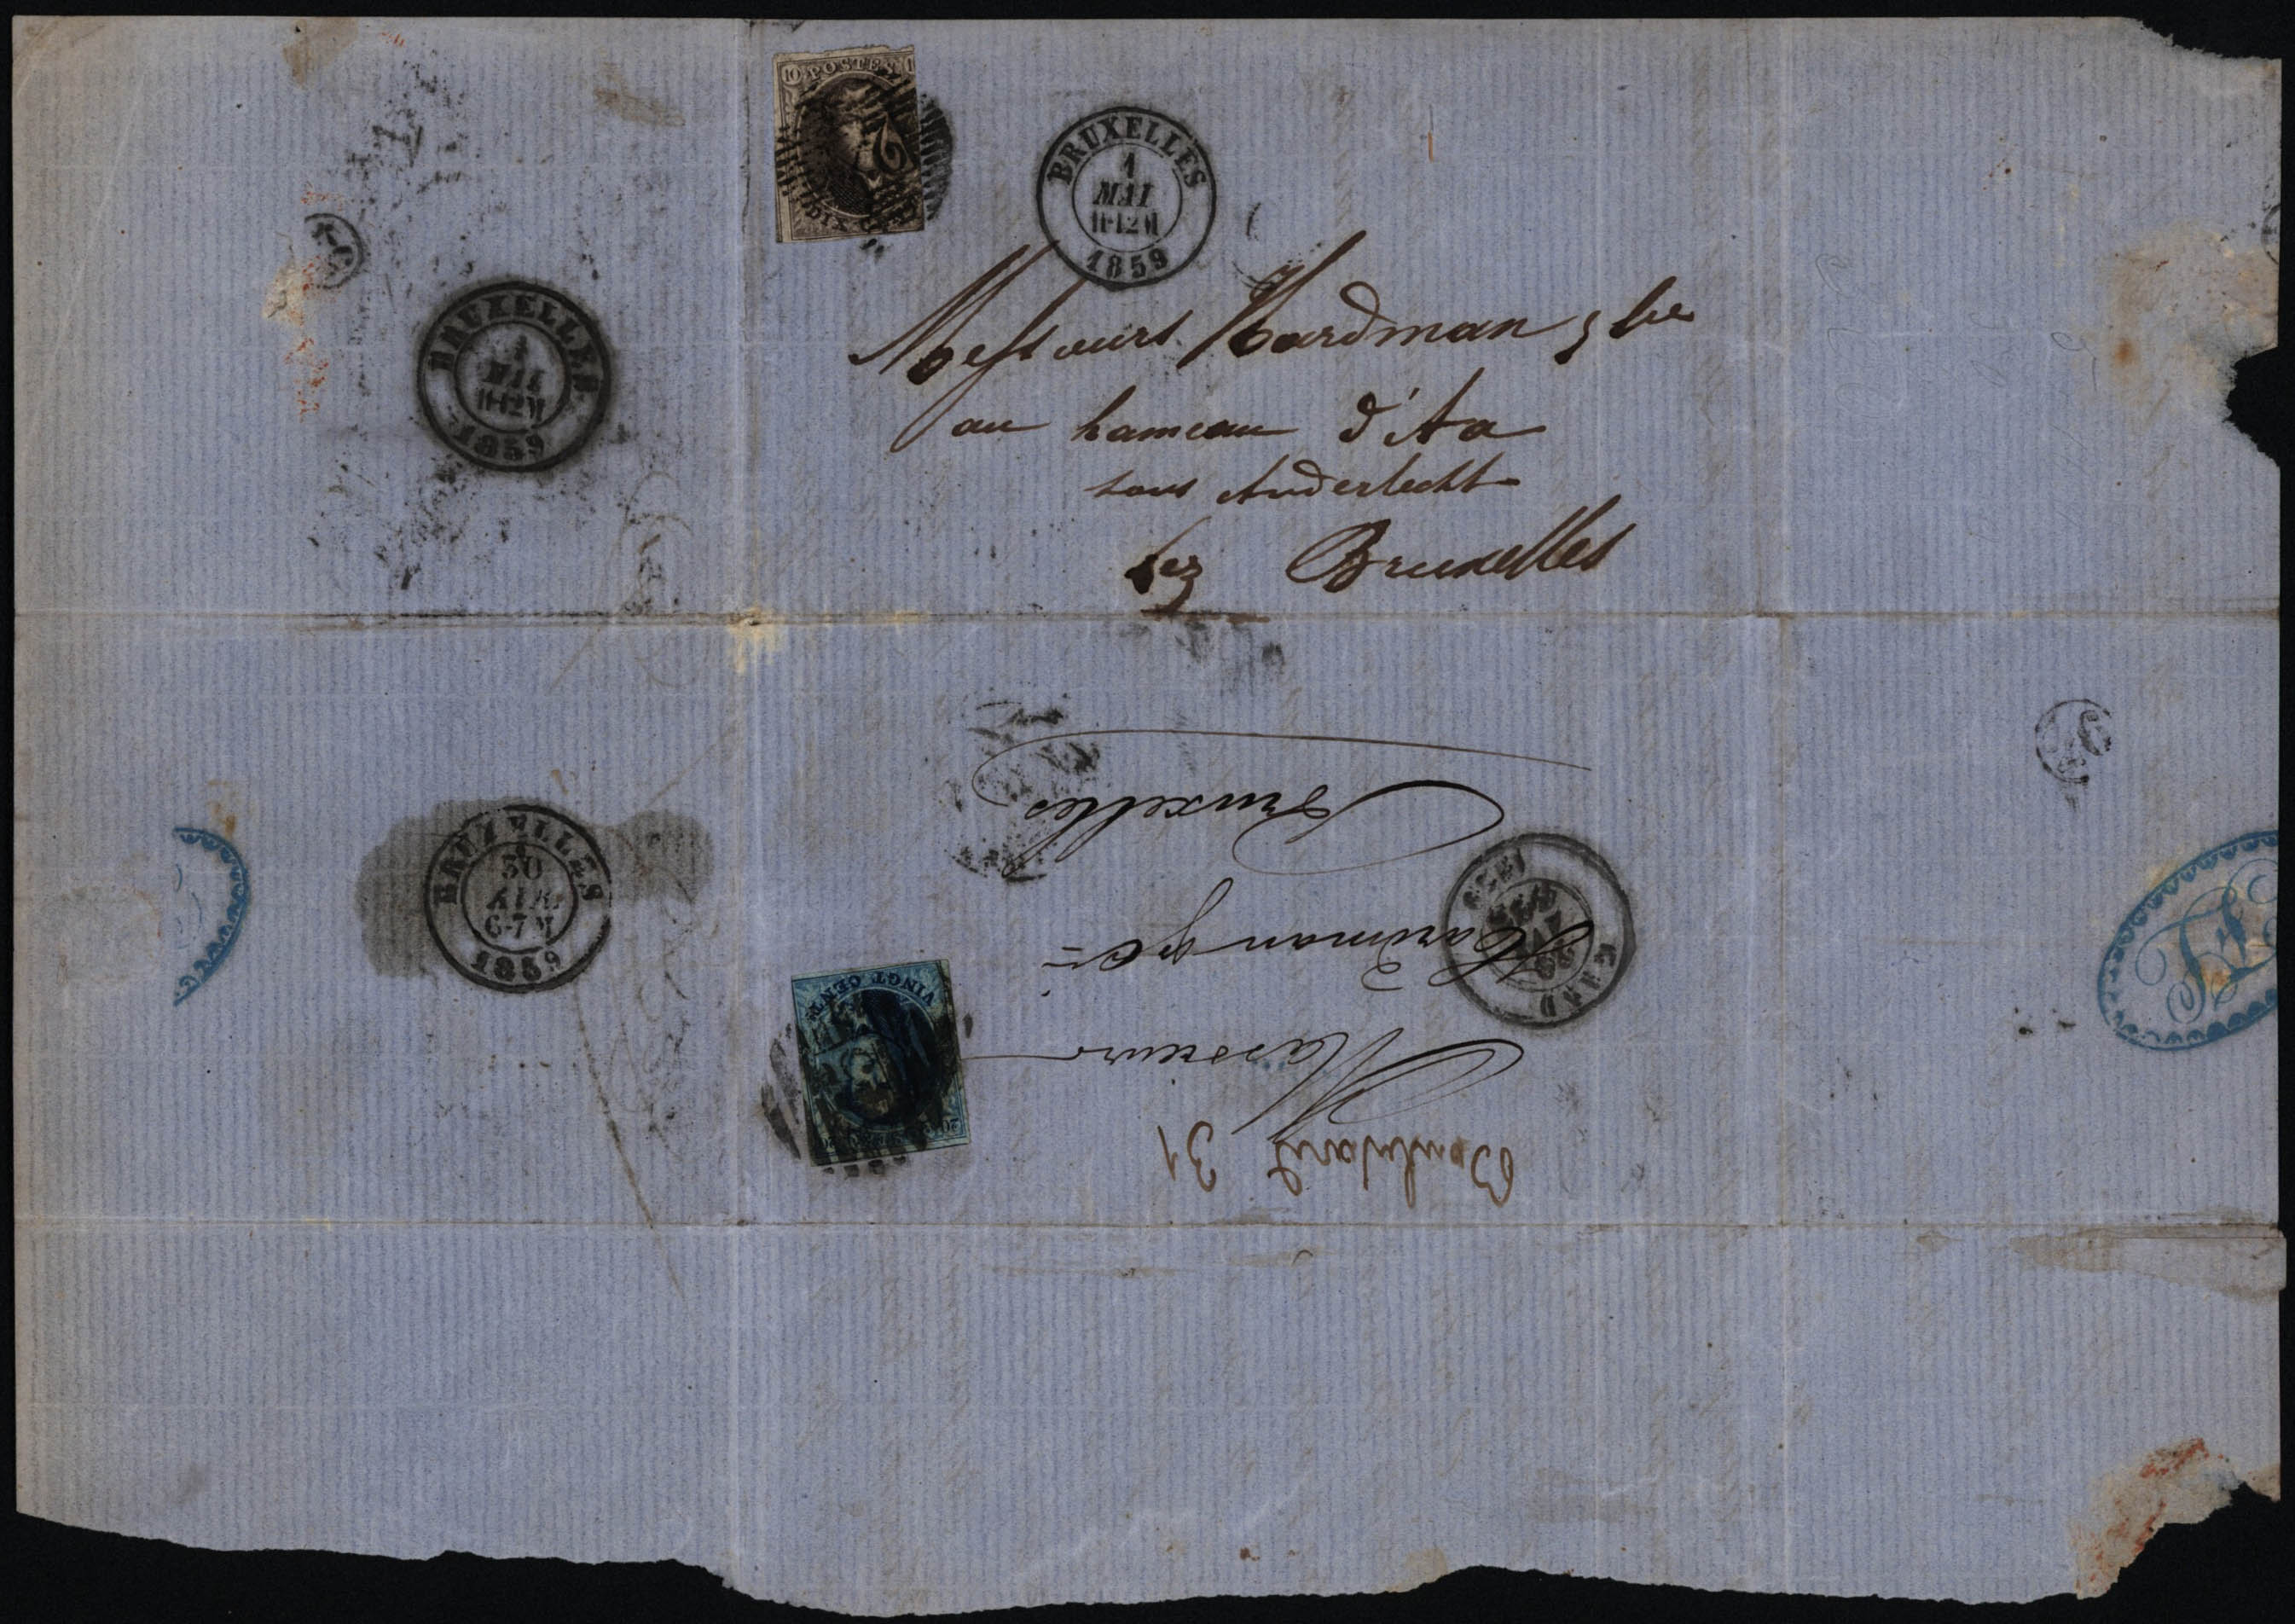 10 POSTES 1
BRUXELLES
1
MAI
11-12M
1859
Messieurs Hardman & Cie
au hameau d'Aa
sous Anderlecht
lez Bruxelles
BRUXELLES
1
MAI
11-12M
1859
BRUXELLES
30
AVR
6-7M
1859
Boulevard 31
Messieurs
Hardman & Co
Bruxelles
GAND
1859
VINGT CENTS
20